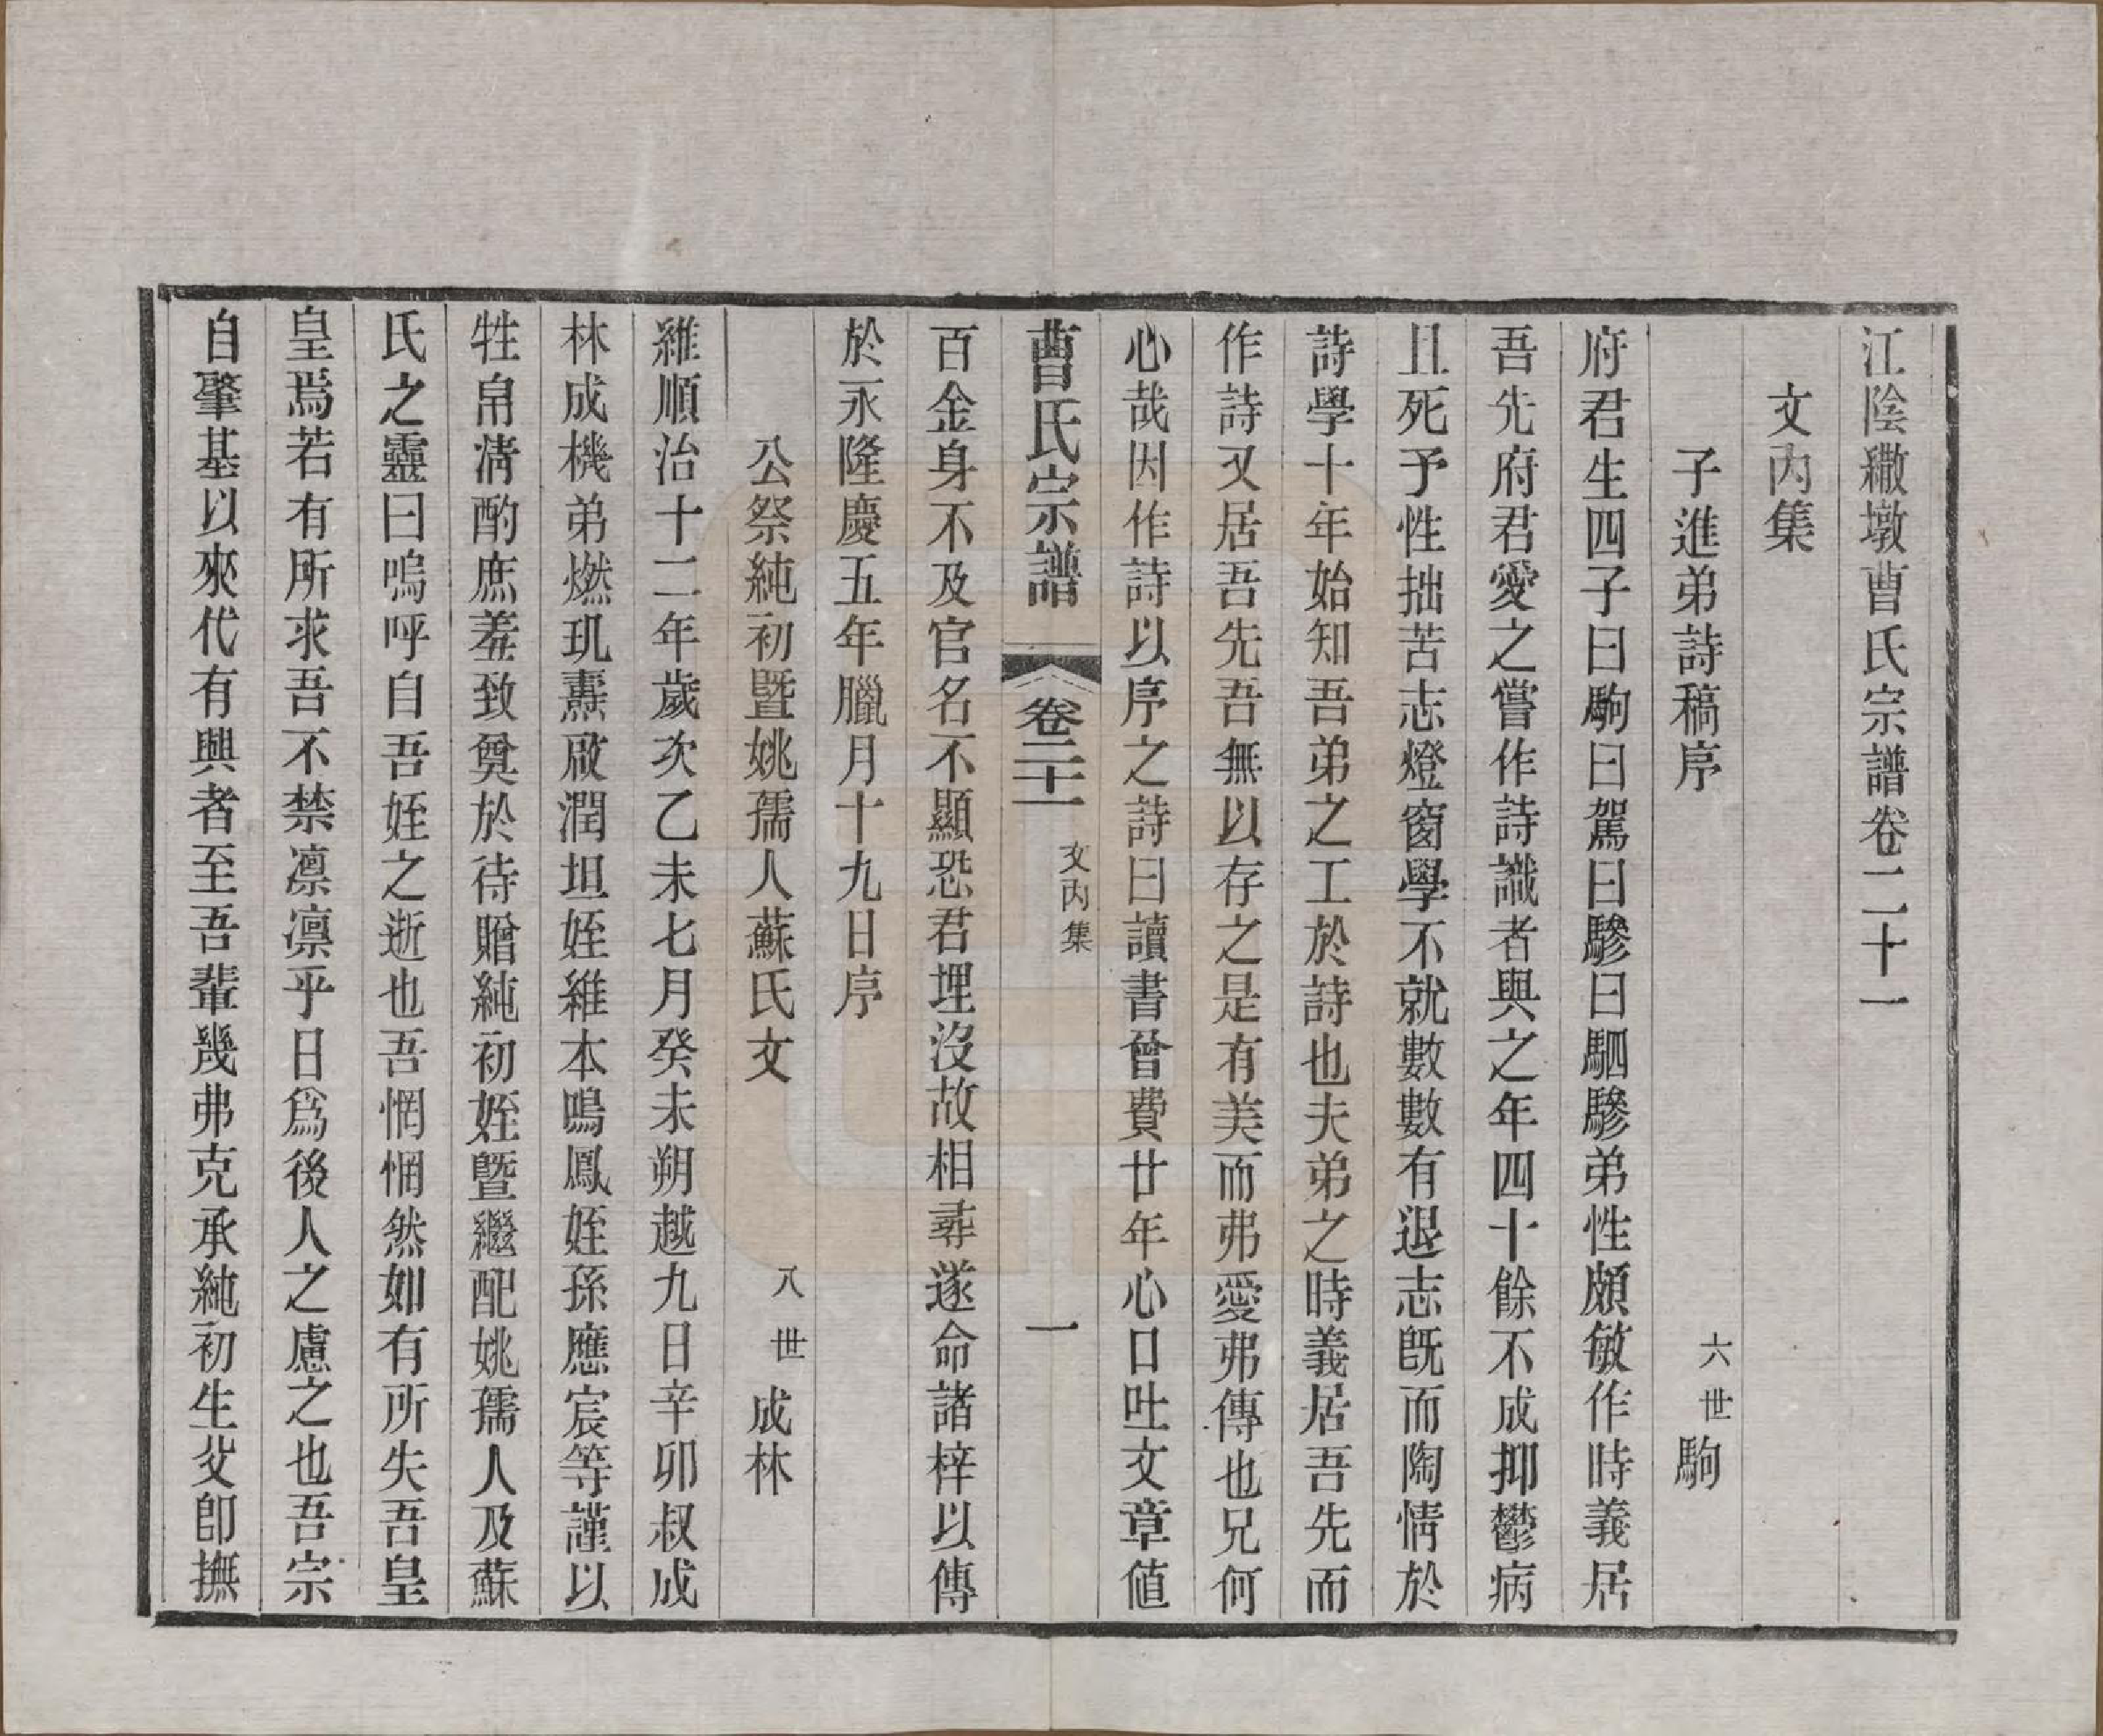 江陰繖墩曹氏宗譜卷二十一
文內集
子進弟詩稿序 六世 駒
府君生四子曰駒曰駕曰驂曰駟驂弟性頗敏作時義居
吾先府君愛之嘗作詩識者與之年四十餘不成抑鬱病
且死予性拙苦志燈窗學不就數數有退志旣而陶情於
詩學十年始知吾弟之工於詩也夫弟之時義居吾先而
作詩又居吾先吾無以存之是有美而弗愛弗傳也兄何
心哉因作詩以序之詩曰讀書曾費廿年心口吐文章値
曹氏宗譜 卷二十一 文內集 一
百金身不及官名不顯恐君埋沒故相尋遂命諸梓以傳
於永隆慶五年臘月十九日序
公祭純初暨姚孺人蘇氏文 八世 成林
維順治十二年歲次乙未七月癸未朔越九日辛卯叔成
林成機弟燃玑燾啟潤坦姪維本鳴鳳姪孫應宸等謹以
牲帛淸酌庶羞致奠於待贈純初姪暨繼配姚孺人及蘇
氏之靈曰嗚呼自吾姪之逝也吾惘惘然如有所失吾皇
皇焉若有所求吾不禁凛凛乎日爲後人之慮之也吾宗
自肇基以來代有興者至吾輩幾弗克承純初生父卽撫